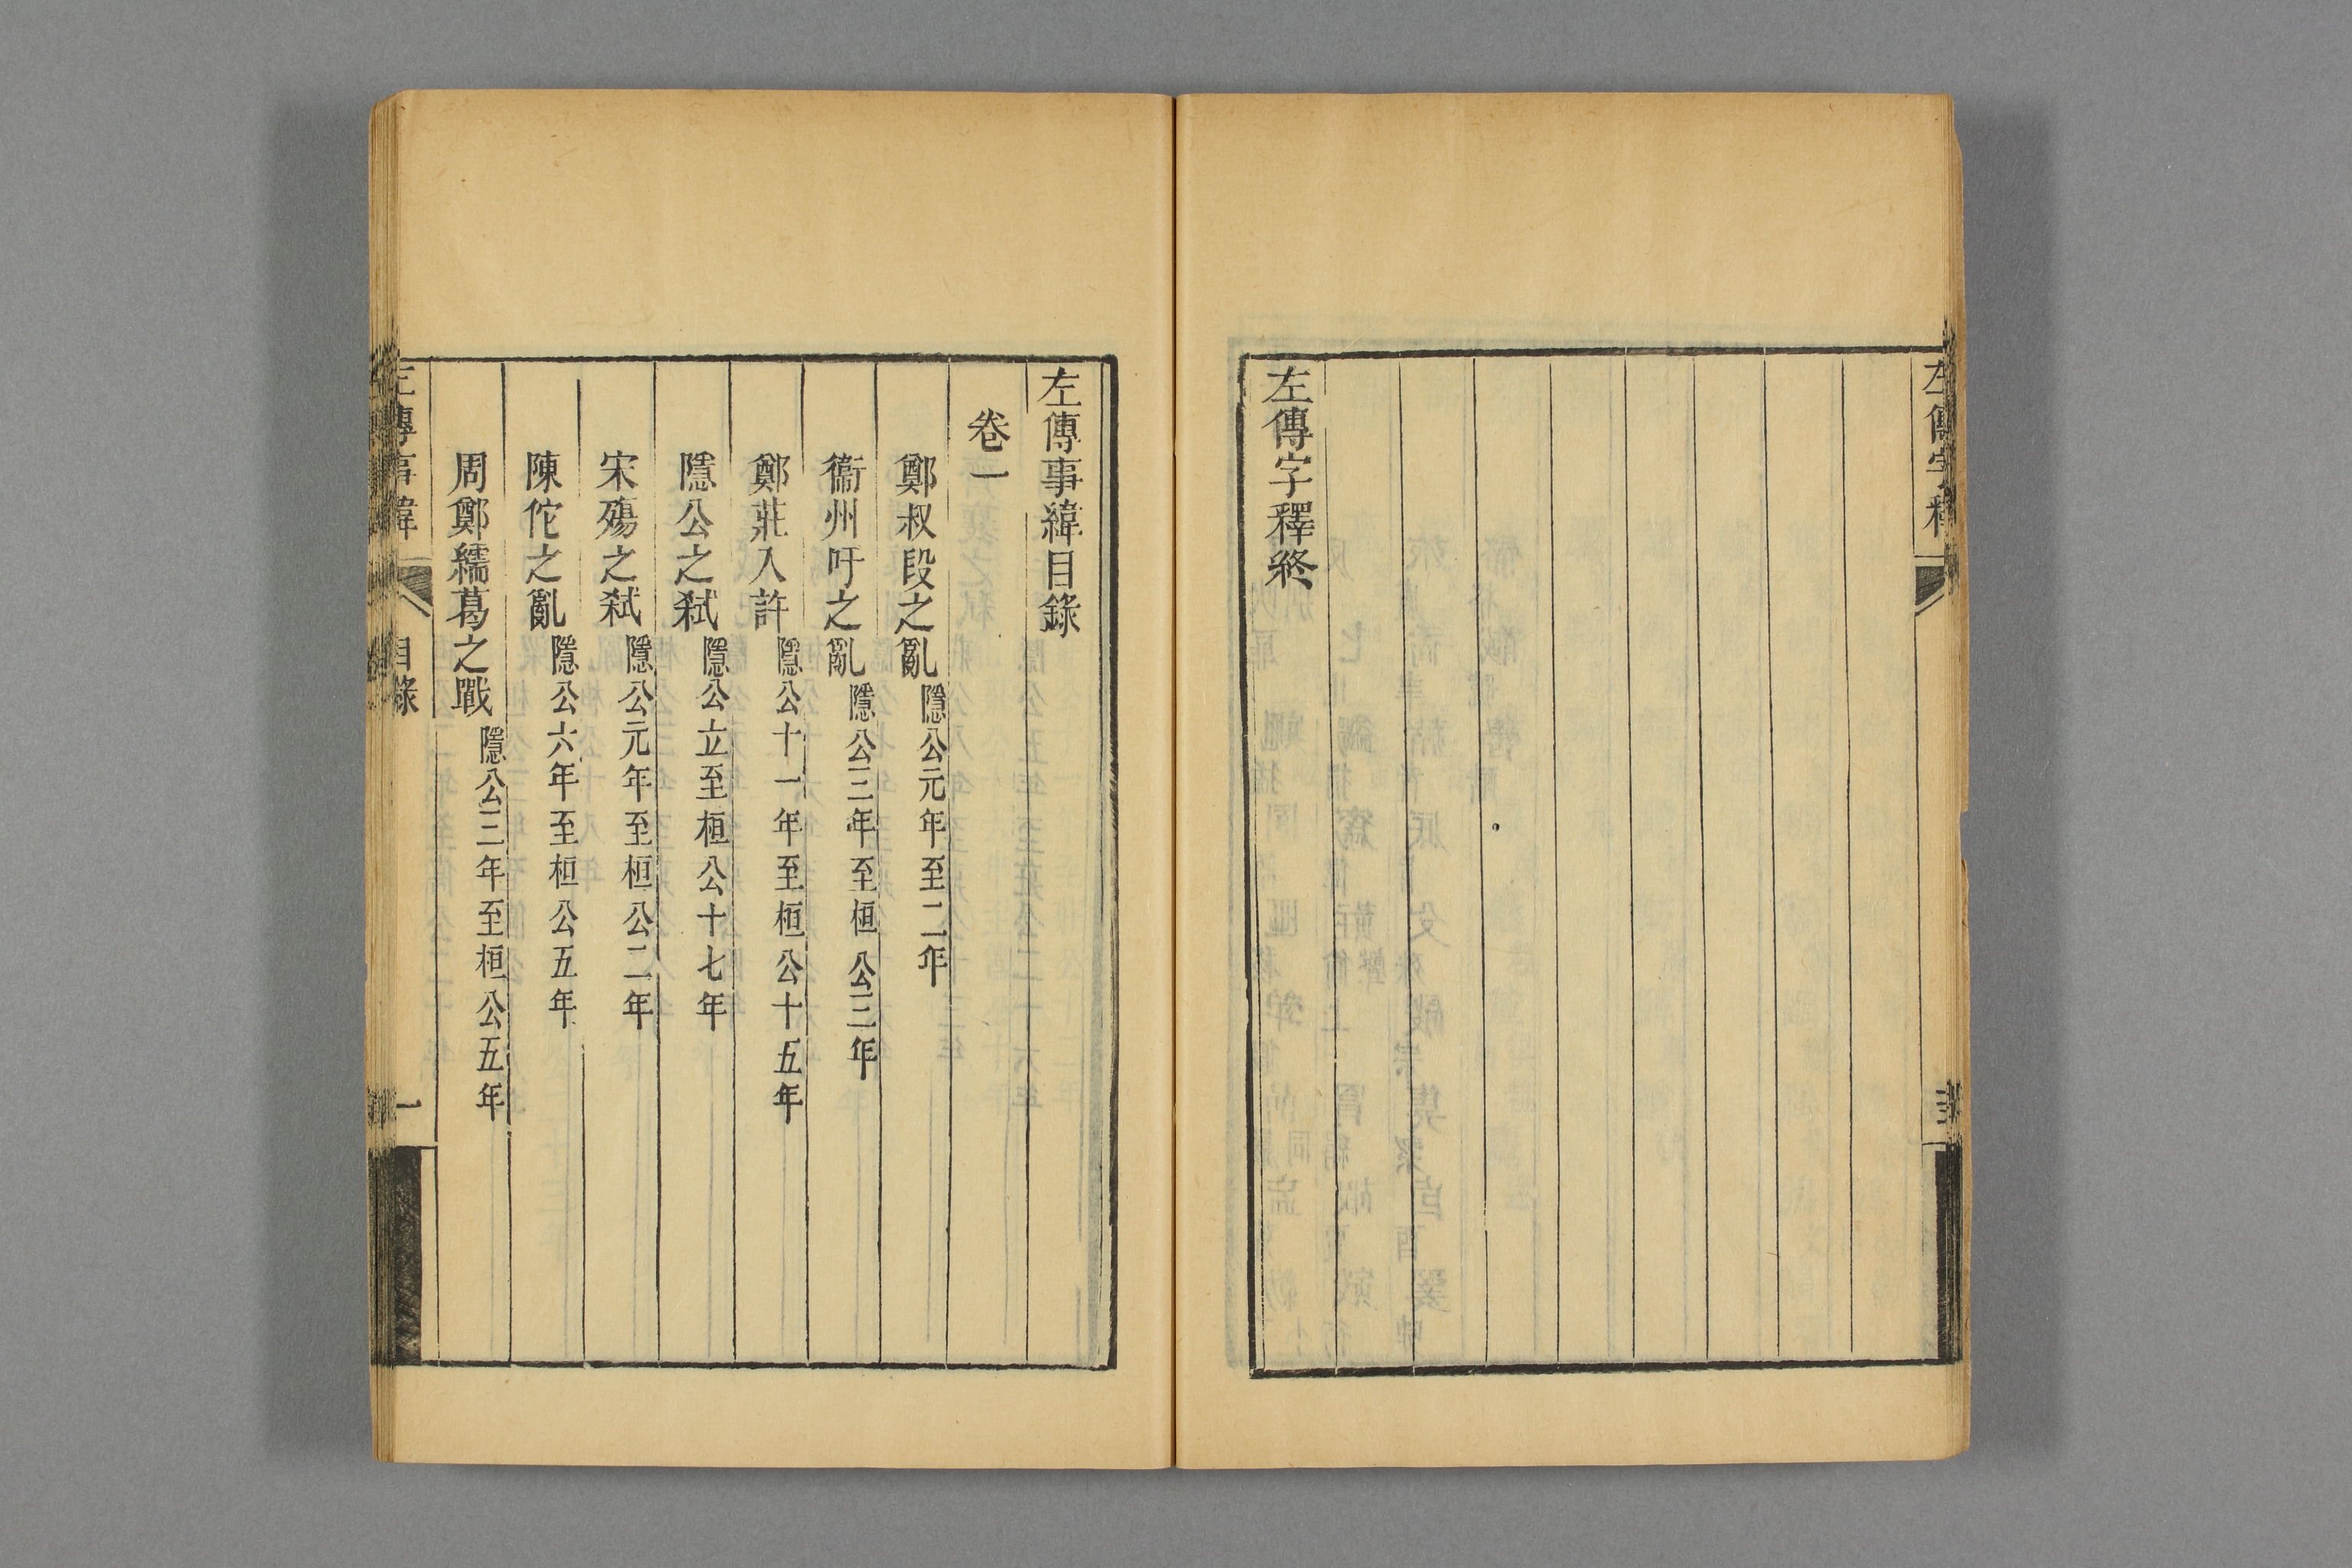 左傳字釋
左傳字釋終
左傳事緯目錄
卷一
鄭叔段之亂 隱公元年至二年
衞州吁之亂 隱公三年至桓公三年
鄭莊入許 隱公十一年至桓公十五年
隱公之弒 隱公立至桓公十七年
宋殤之弒 隱公元年至桓公二年
陳佗之亂 隱公六年至桓公五年
周鄭繻葛之戰 隱公三年至桓公五年
左傳事緯 目錄 一